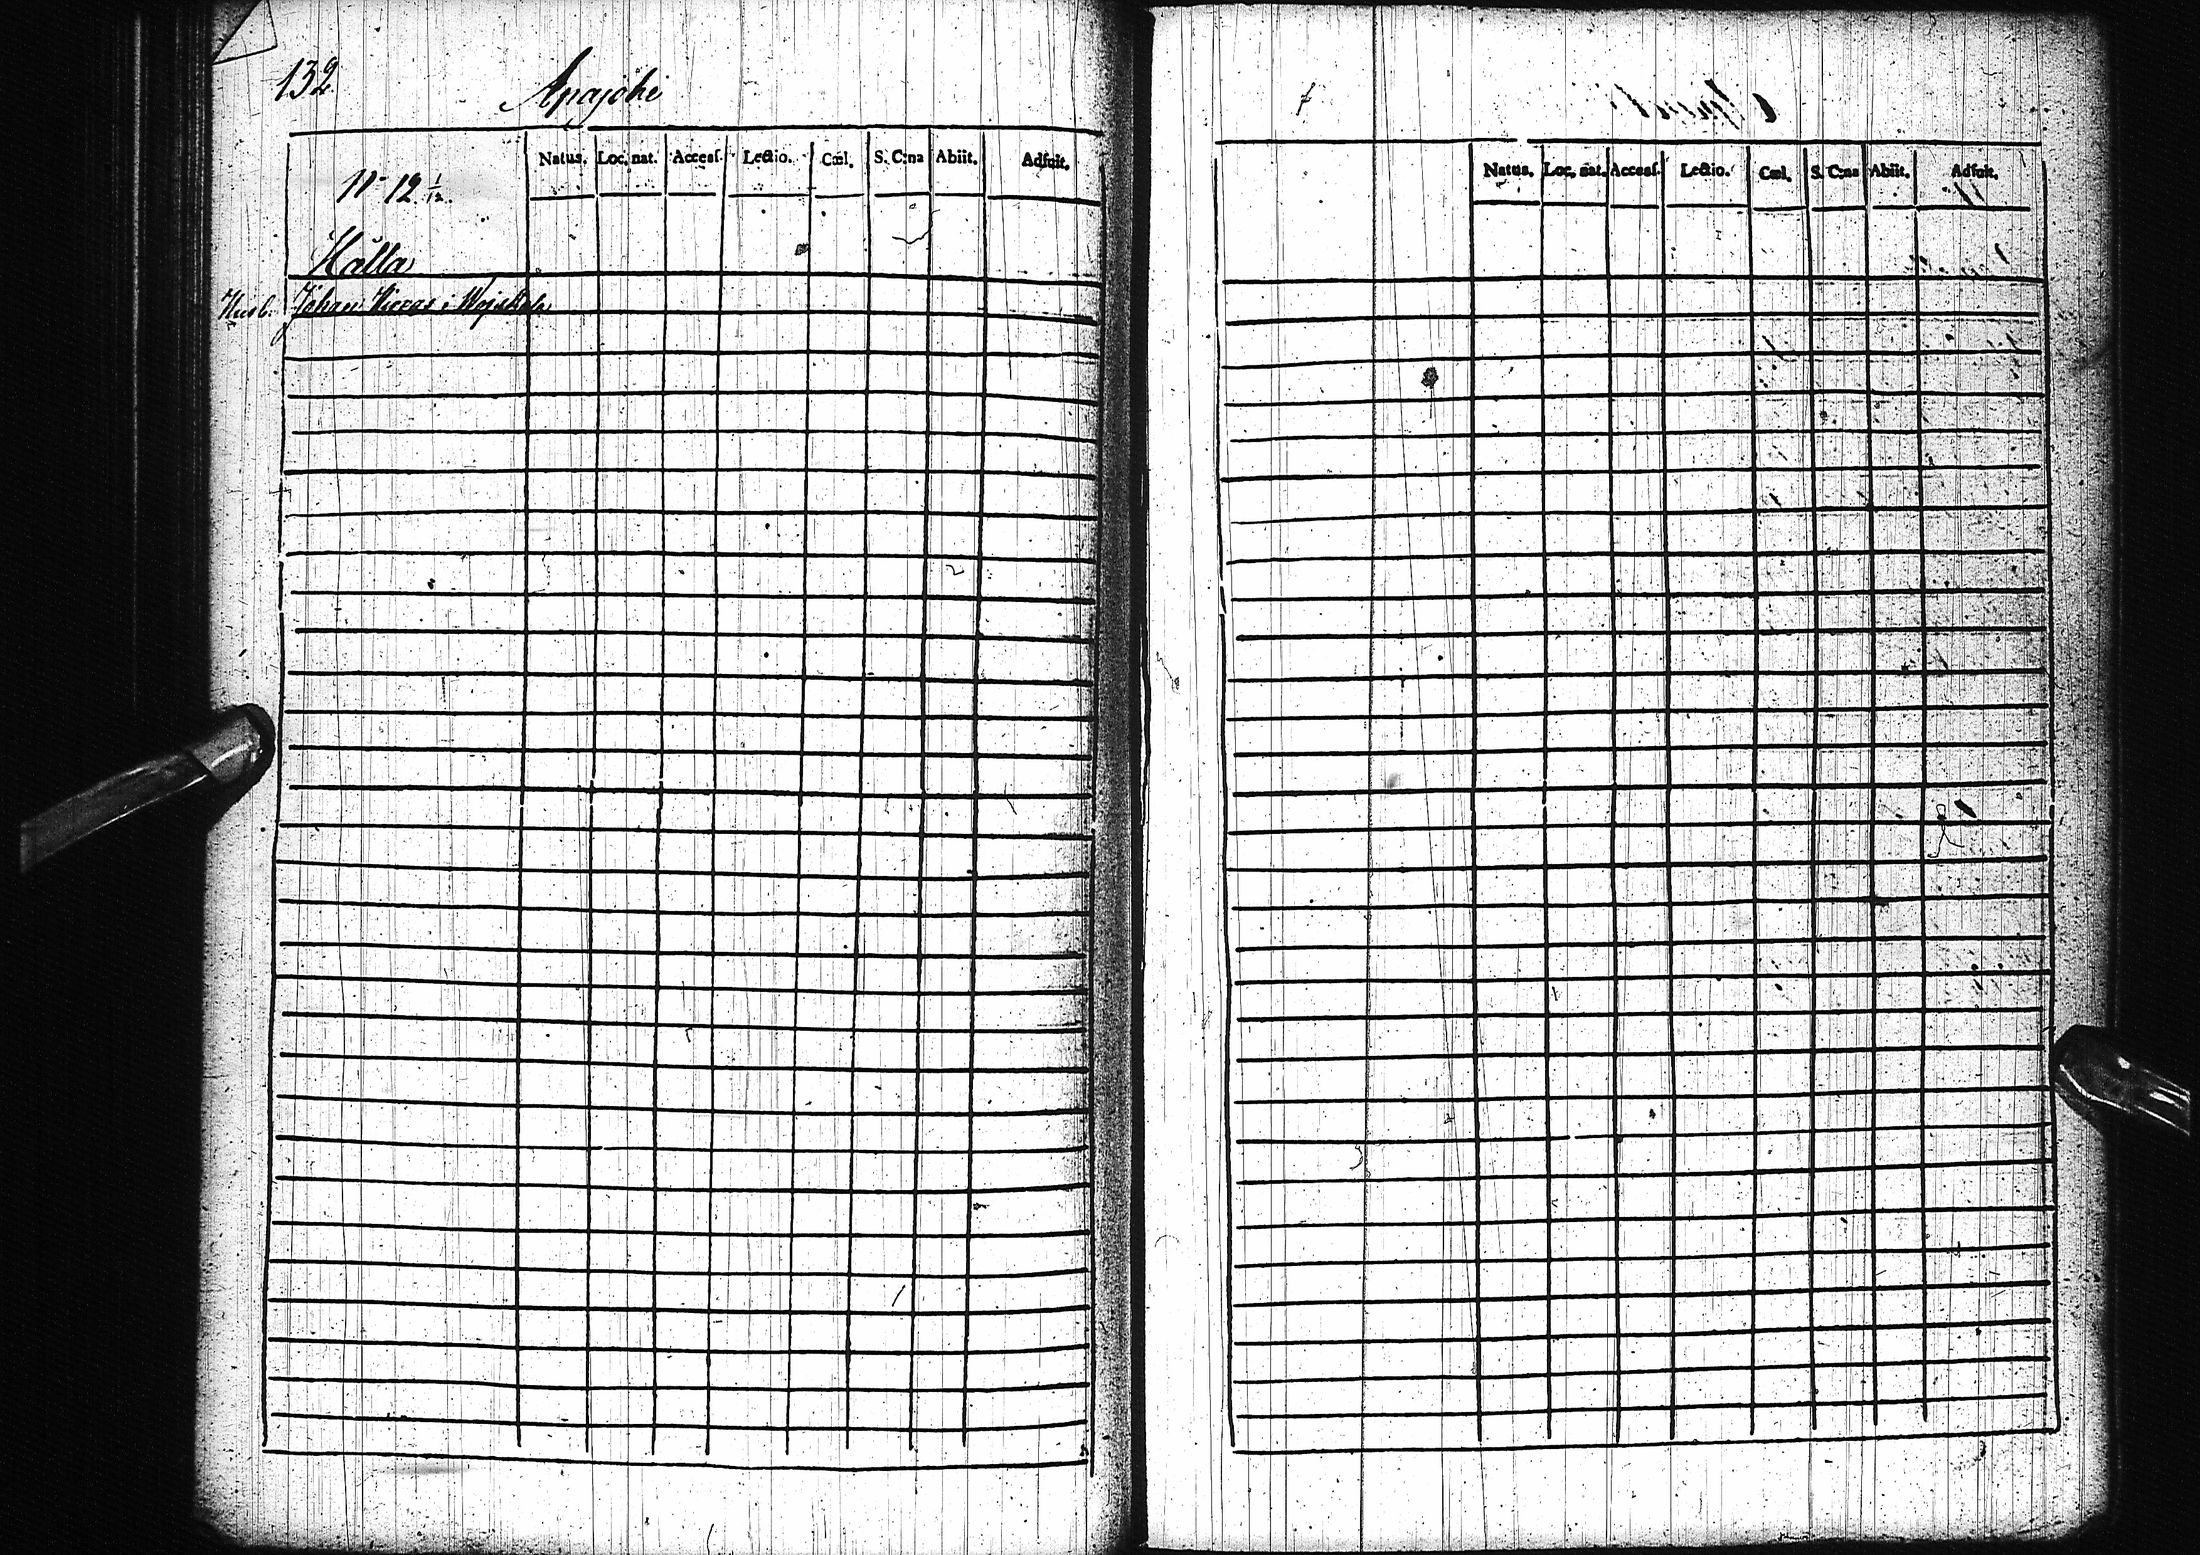 132
Apajõki
Natus. Loc. nat. Accesſ. Lectio. Cœl. S. C:na Abiit. Adfuit.
N° 12. 1/12.
Hálla
Husb. Johan i Wojskala
Natus. Loc. nat. Accesſ. Lectio. Cœl. S. C:na Abiit. Adfuit.